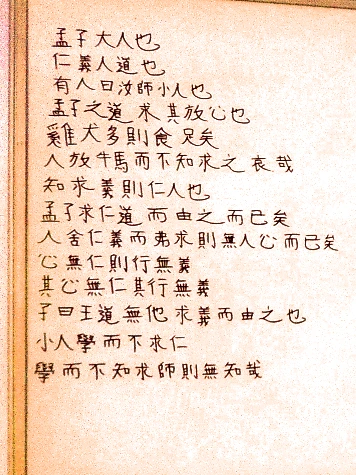 孟子大人也
仁義人道也
有人曰汝師小人也
孟子之道求其放心也
雞犬多則食足矣
人放牛馬而不知求之哀哉
知求義則仁人也
孟子求仁道而由之而已矣
人舍仁義而弗求則無人心而已矣
心無仁則行無義
其心無仁其行無義
子曰王道無他求義而由之也
小人學而不求仁
學而不知求師則無知哉